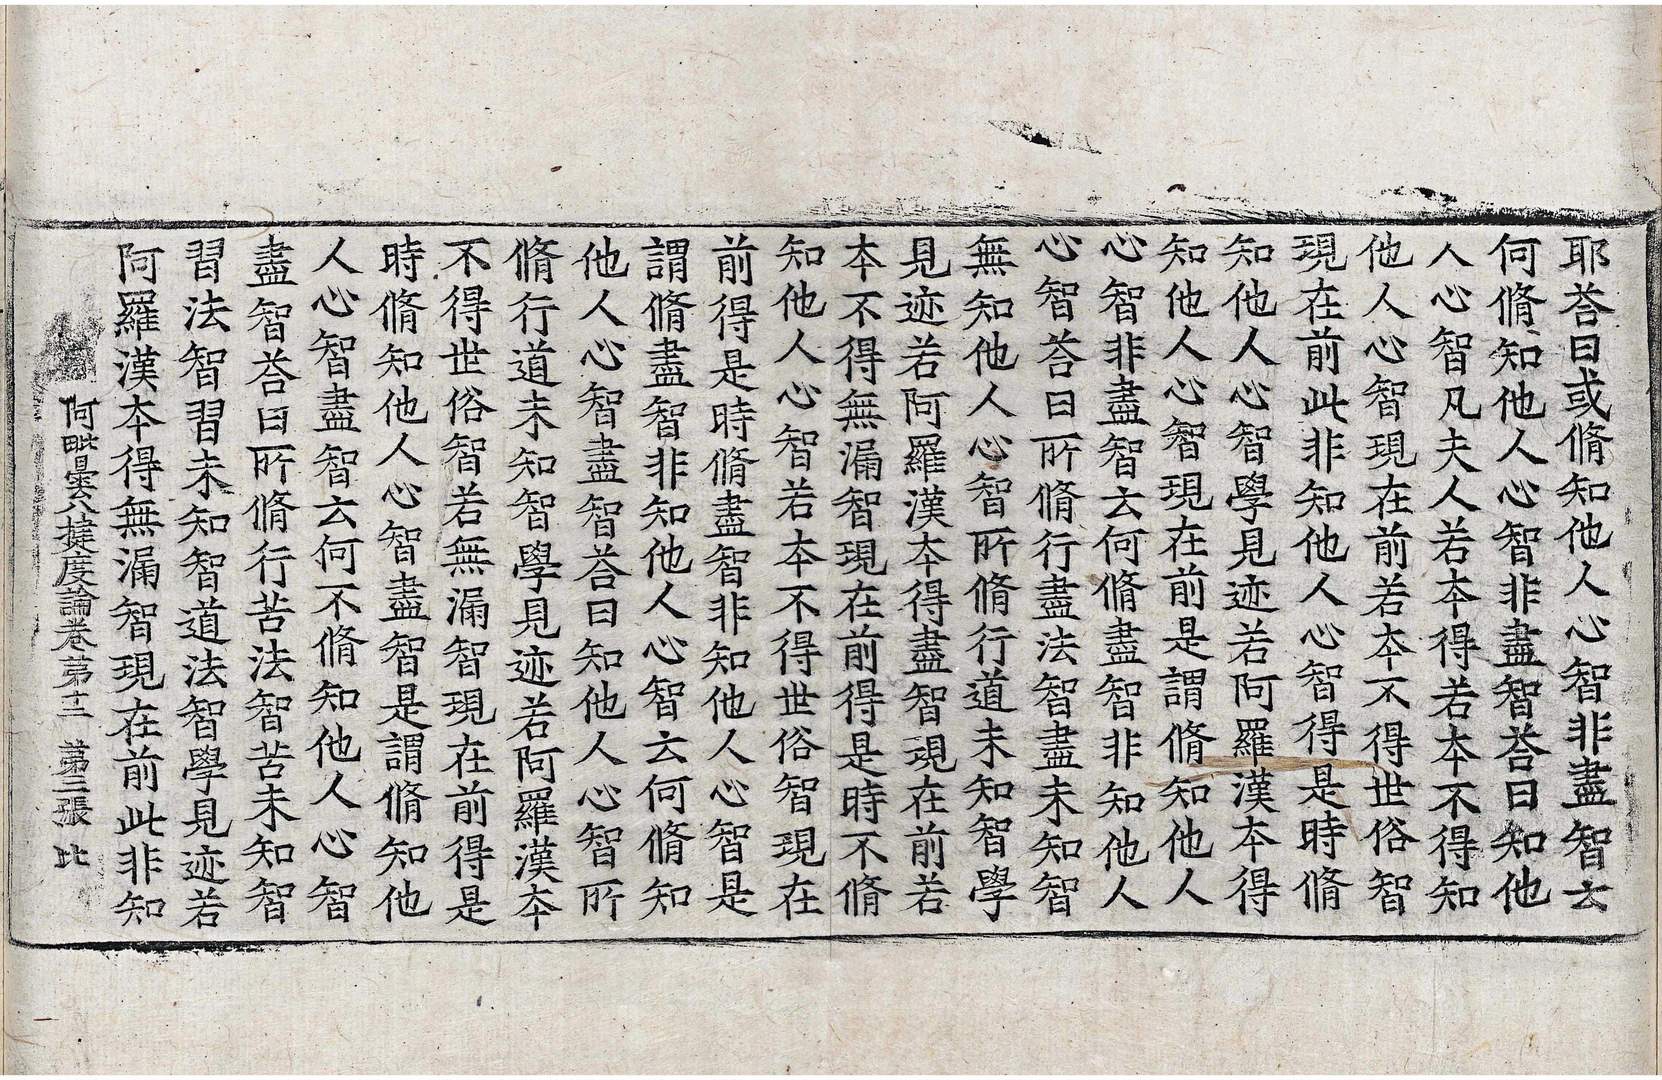 耶荅曰或脩知他人心智非盡智云
何脩知他人心智非盡智荅曰知他
人心智凡夫人若本得若本不得知
他人心智現在前若本不得世俗智
現在前此非知他人心智得是時脩
知他人心智學見迹若阿羅漢本得
知他人心智現在前是謂脩知他人
心智非盡智云何脩盡智非知他人
心智荅曰所脩行盡法智盡未知智
無知他人心智所脩行道未知智學
見迹若阿羅漢本得盡智現在前若
本不得無漏智現在前得是時不脩
知他人心智若本不得世俗智現在
前得是時脩盡智非知他人心智是
謂脩盡智非知他人心智云何脩知
他人心智盡智荅曰知他人心智所
脩行道未知智學見迹若阿羅漢本
不得世俗智若無漏智現在前得是
時脩知他人心智盡智是謂脩知他
人心智盡智云何不脩知他人心智
盡智荅曰所脩行苦法智苦未知智
習法智習未知智道法智學見迹若
阿羅漢本得無漏智現在前此非知
阿毗曇八揵度論卷第十二　第三張　比